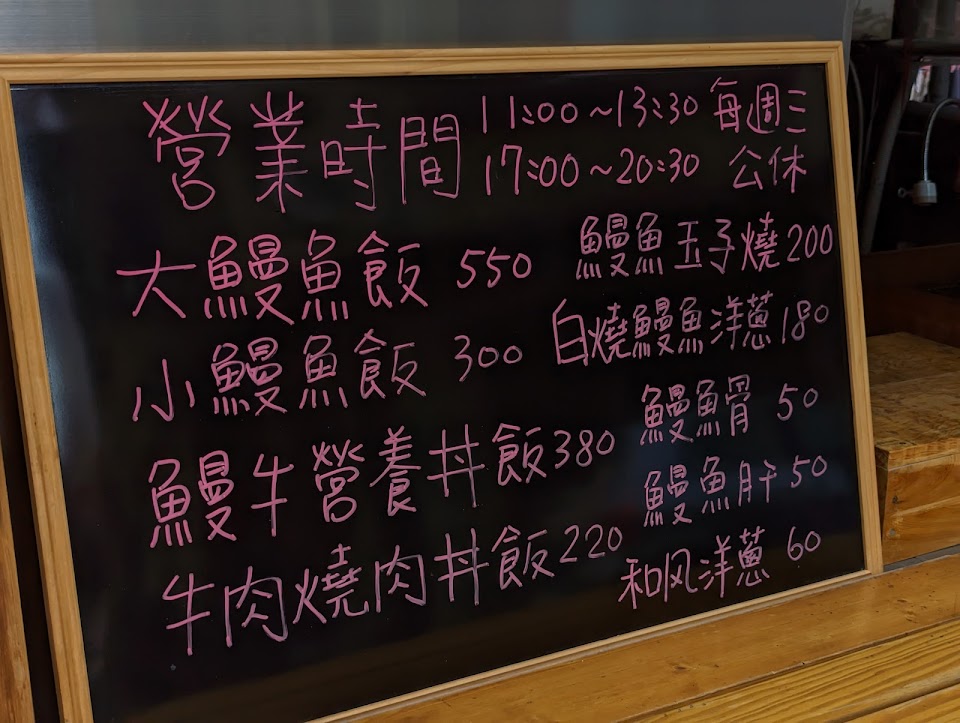 營業時間 11:00~13:30 每週三
17:00~20:30 公休
大鰻魚飯 550
小鰻魚飯 300
鰻牛營養丼飯380
牛肉燒肉丼飯220
鰻魚玉子燒200
白燒鰻魚洋蔥180
鰻魚骨 50
鰻魚肝50
和风洋蔥 60